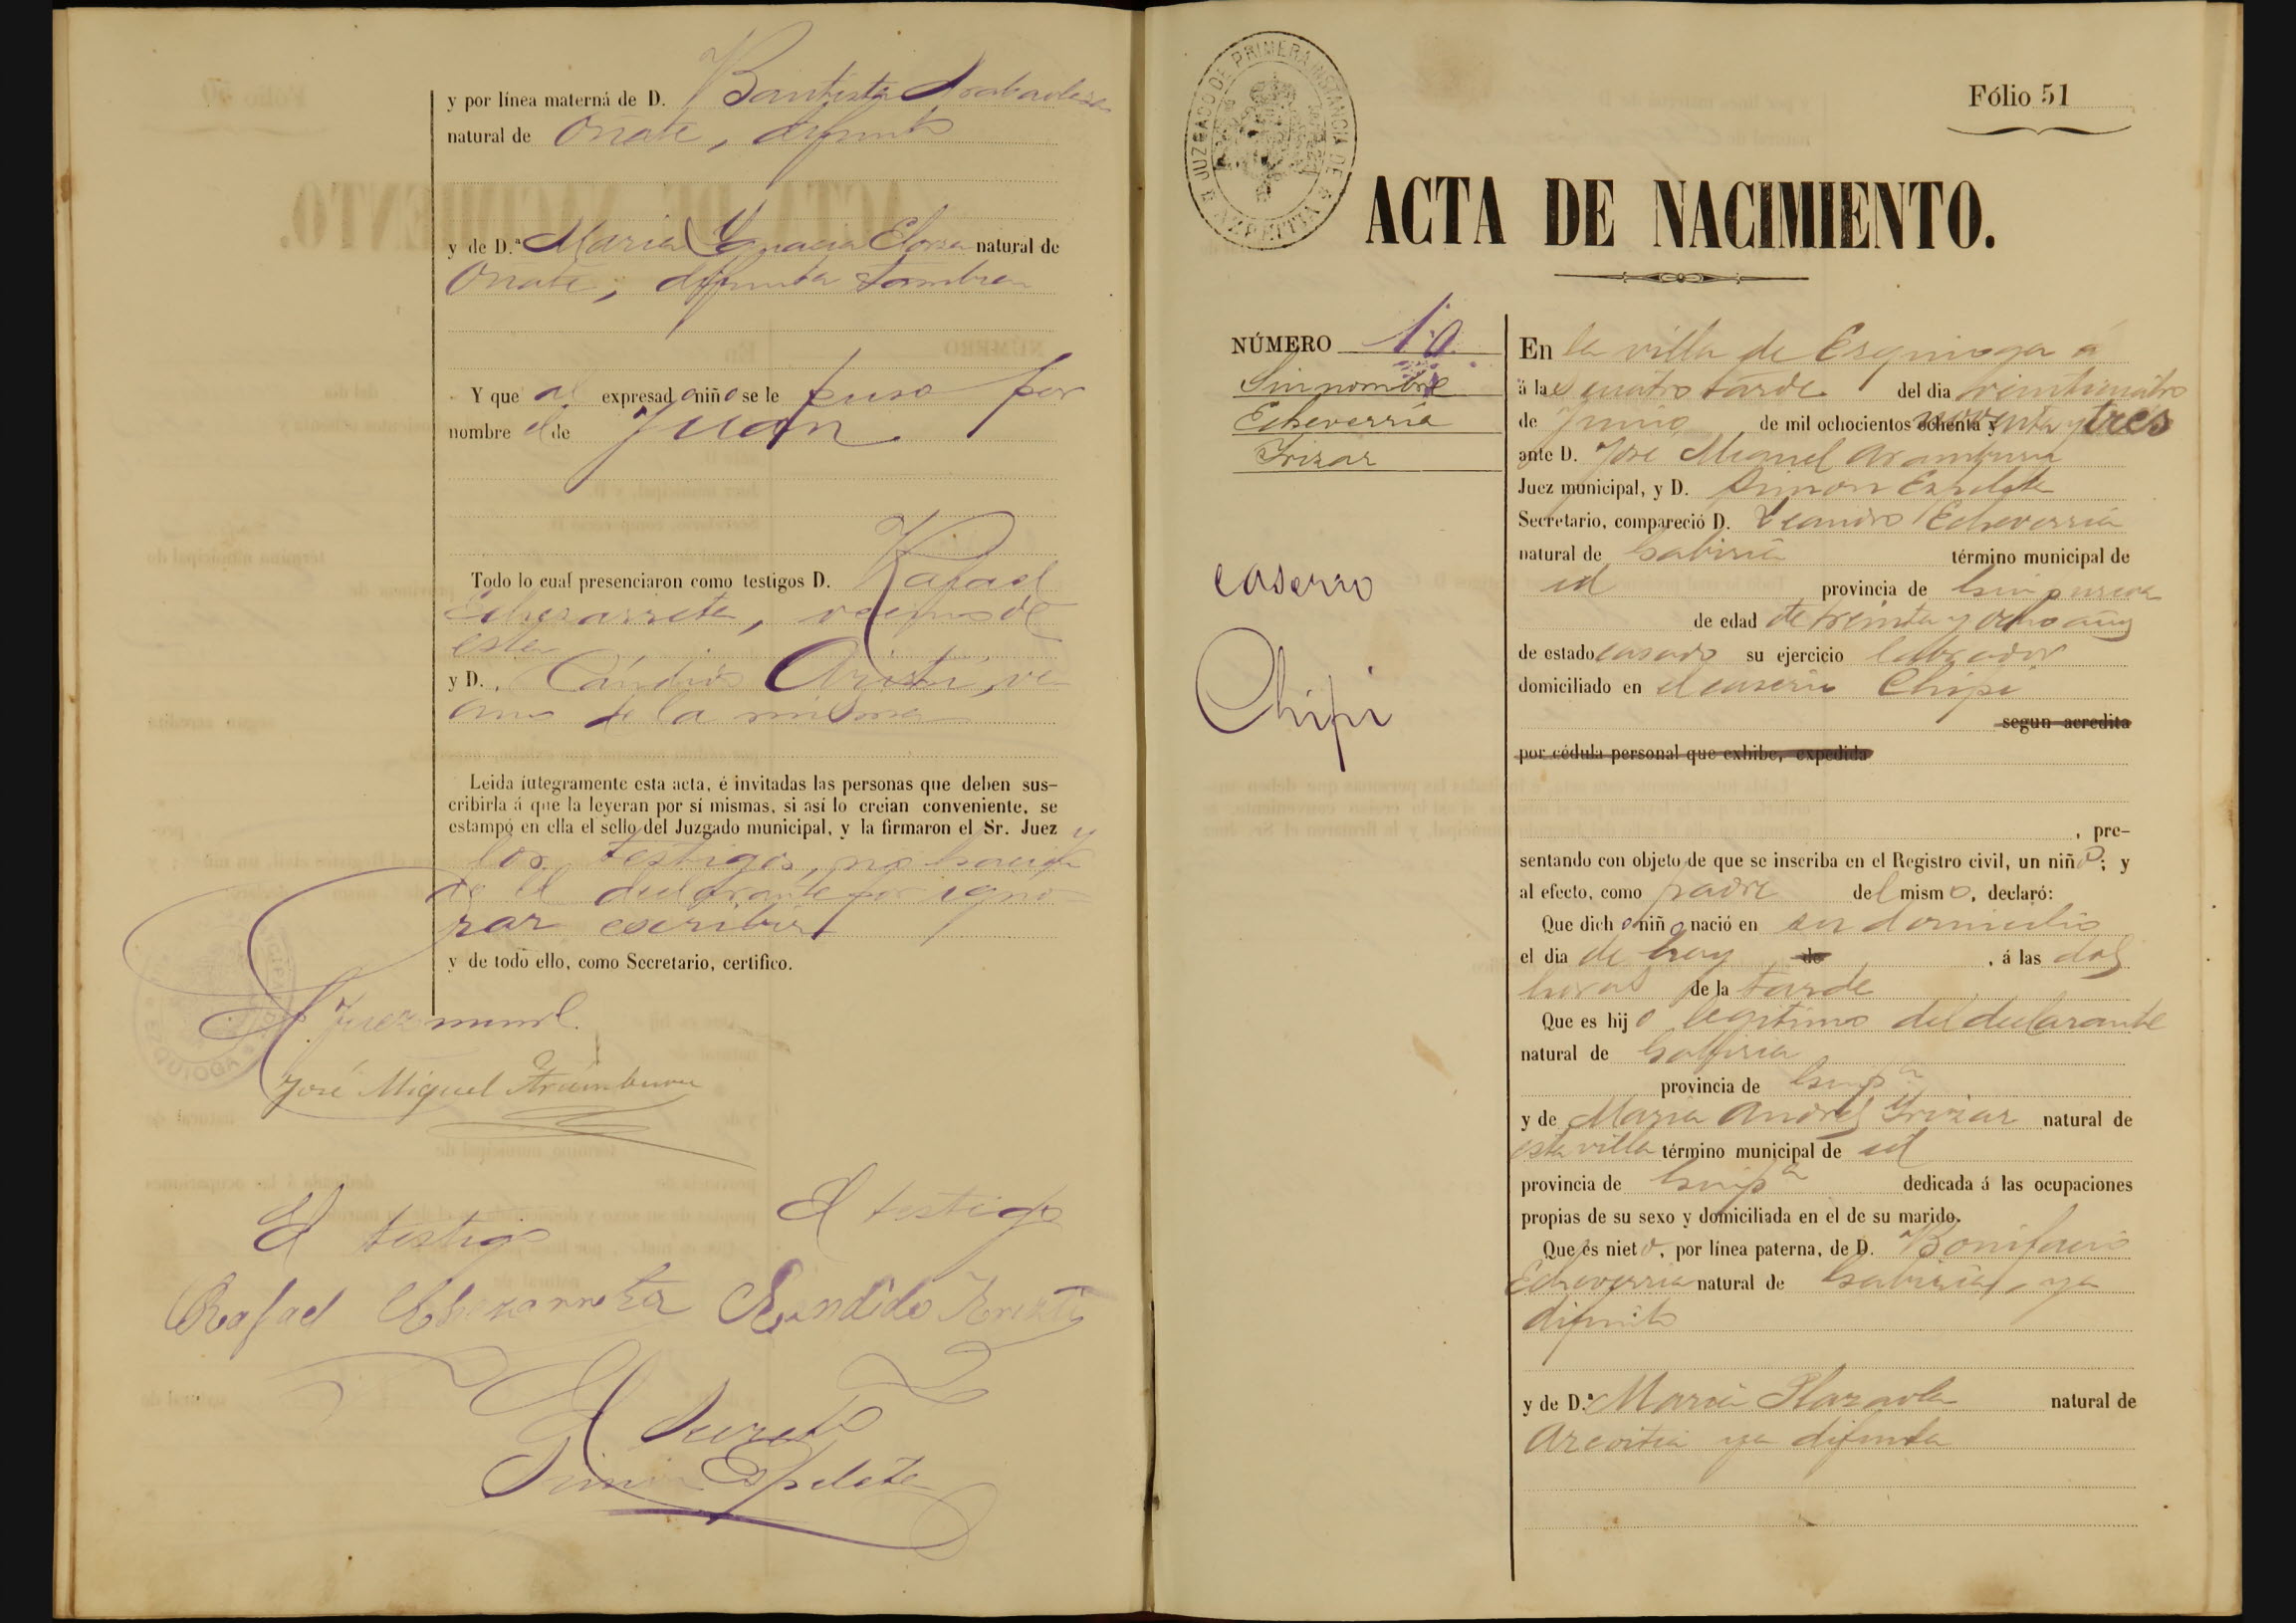 y por línea materná de D. Bautista
natural de Oñate, difunto
y de D.ª Maria Ygnacia Elorza natural de
Oñate; difunta tambien
Y que al expresado niño se le puso por
nombre el de Juan
Todo lo cual presenciaron como testigos D. Rafael
Echezarreta, vecino de
esta
y D. Cándido Aristi, ve
cino de la misma
Leida íntegramente esta acta, é invitadas las personas que deben sus-
cribirla á que la leyeran por sí mismas, si así lo creian conveniente, se
estampó en ella el sello del Juzgado municipal, y la firmaron el Sr. Juez y
los testigos, no haciendo
lo el declarante por igno-
rar escribir
y de todo ello, como Secretario, certifico.
EZQUIOGA
El Juez munl.
José Miguel Aramburu
El testigo
El testigo
Rafael Echezarreta
Kandido
El Secreto
Simon Ezpeleta
JUZGADO DE PRIMERA INSTANCIA DE AZPEITIA
Fólio 51
ACTA DE NACIMIENTO.
NÚMERO 10
Sin nombre
Echeverria
Yrizar
caserio
Chipi
En la villa de Ezquioga á
á las cuatro tarde del dia veinticuatro
de Junio de mil ochocientos ochenta y noventa y tres
ante D. José Miguel Aramburu
Juez municipal, y D. Simon Ezpeleta
Secretario, compareció D. Leandro Echeverria
natural de Gabiria término municipal de
id provincia de Guipuzcoa
de edad de treinta y ocho años
de estado casado su ejercicio labrador
domiciliado en el caserio Chipi
segun acredita
por cédula personal que exhibe, expedida
, pre-
sentando con objeto de que se inscriba en el Registro civil, un niño; y
al efecto, como padre del mismo, declaró:
Que dicho niño nació en su domicilio
el dia de hoy de , á las dos
horas de la tarde
Que es hijo legitimo del declarante
natural de Gabiria
provincia de Guipª
y de Maria Andres Yrizar natural de
esta villa término municipal de id
provincia de Guipª dedicada á las ocupaciones
propias de su sexo y domiciliada en el de su marido.
Que es nieto, por línea paterna, de D. Bonifacio
Echeverria natural de Gabiria, ya
difunto
y de D.ª Maria Olazaola natural de
Azcoitia ya difunta